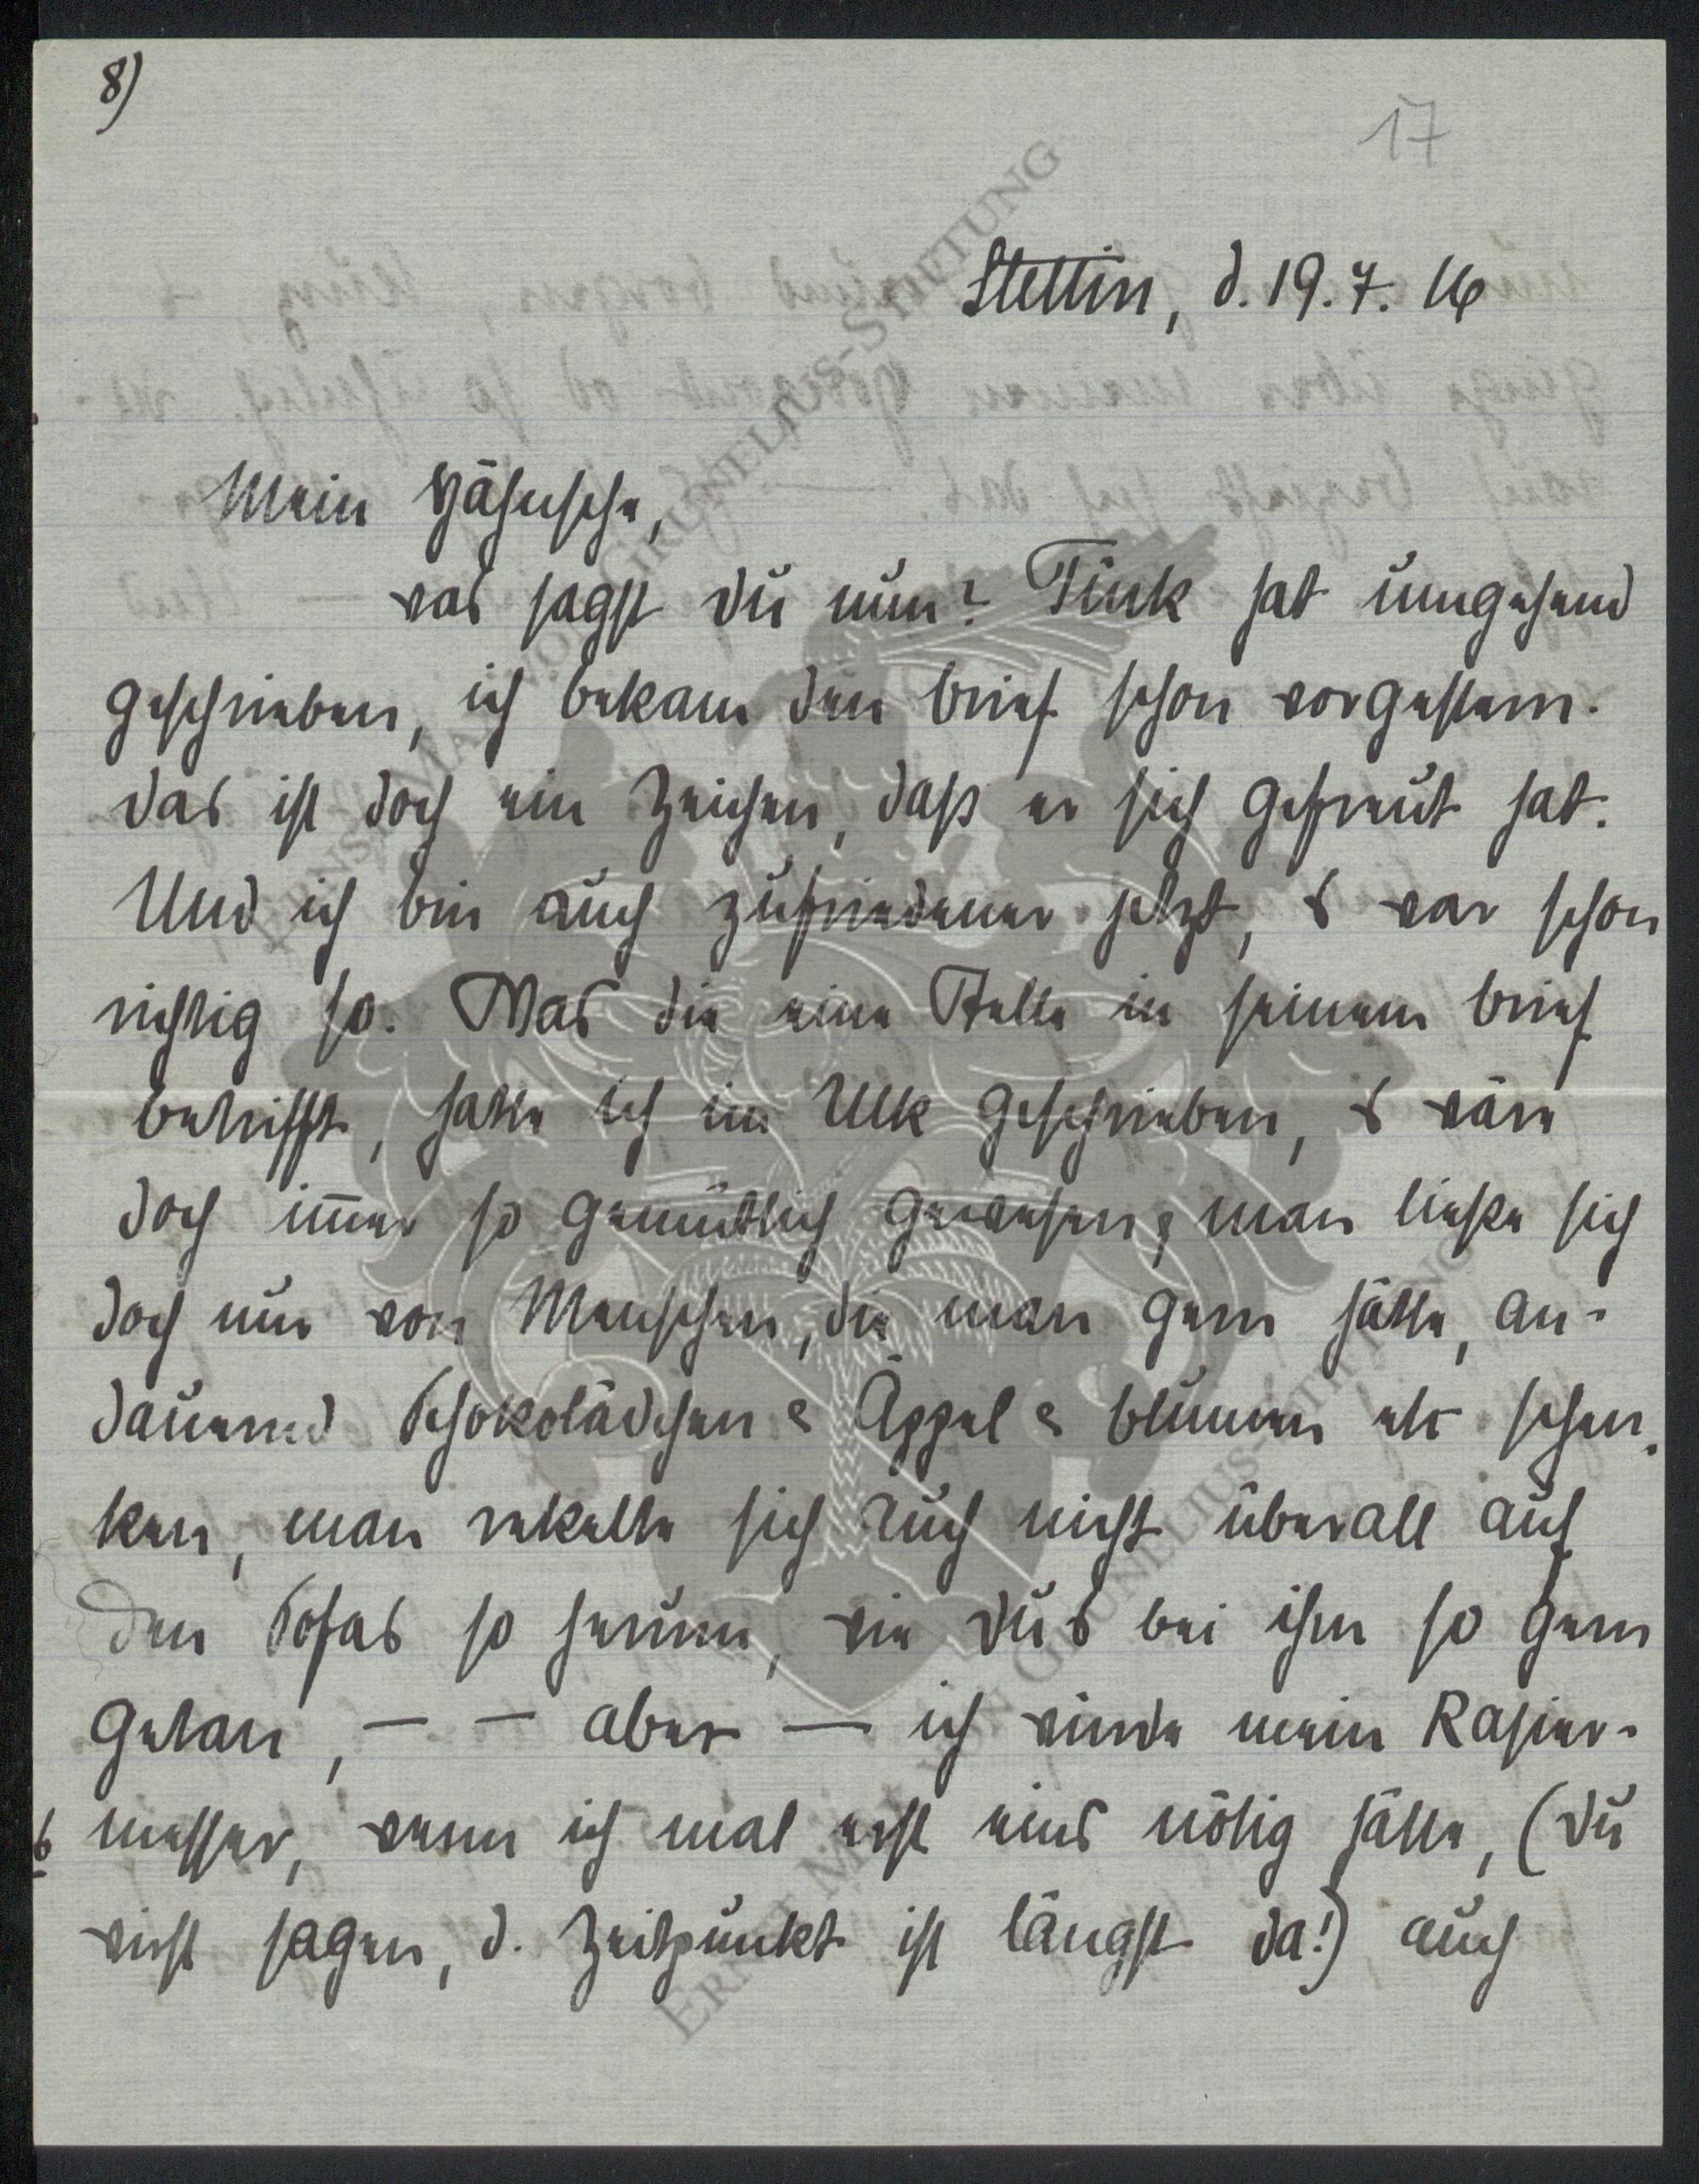 8)
17
Stettin, d. 19. 7. 16
Mein Hähnche,
was sagst Du nun? Tink hat umgehend
geschrieben, ich bekam den Brief schon vorgestern.
Das ist doch ein Zeichen, dass er sich gefreut hat.
Und ich bin auch zufriedener jetzt, 's war schon
richtig so. Was die eine Stelle in seinem Brief
betrifft, hatte ich im Ulk geschrieben, 's wäre
doch im̅er so gemütlich gewesen, man liesse sich
doch nur von Menschen, die man gern hätte, an-
dauernd Schokolädchen & Äppel & Blumen etc schen-
ken, man rekelte sich auch nicht überall auf
den Sofas so herum, wie Du's bei ihm so gern
getan, — — aber — ich würde mein Rasier-
messer, wenn ich mal erst eins nötig hätte, (Du
wirst sagen, d. Zeitpunkt ist längst da!) auch
ERNST MAX VON GRUNELIUS-STIFTUNG
ERNST MAX VON GRUNELIUS-STIFTUNG